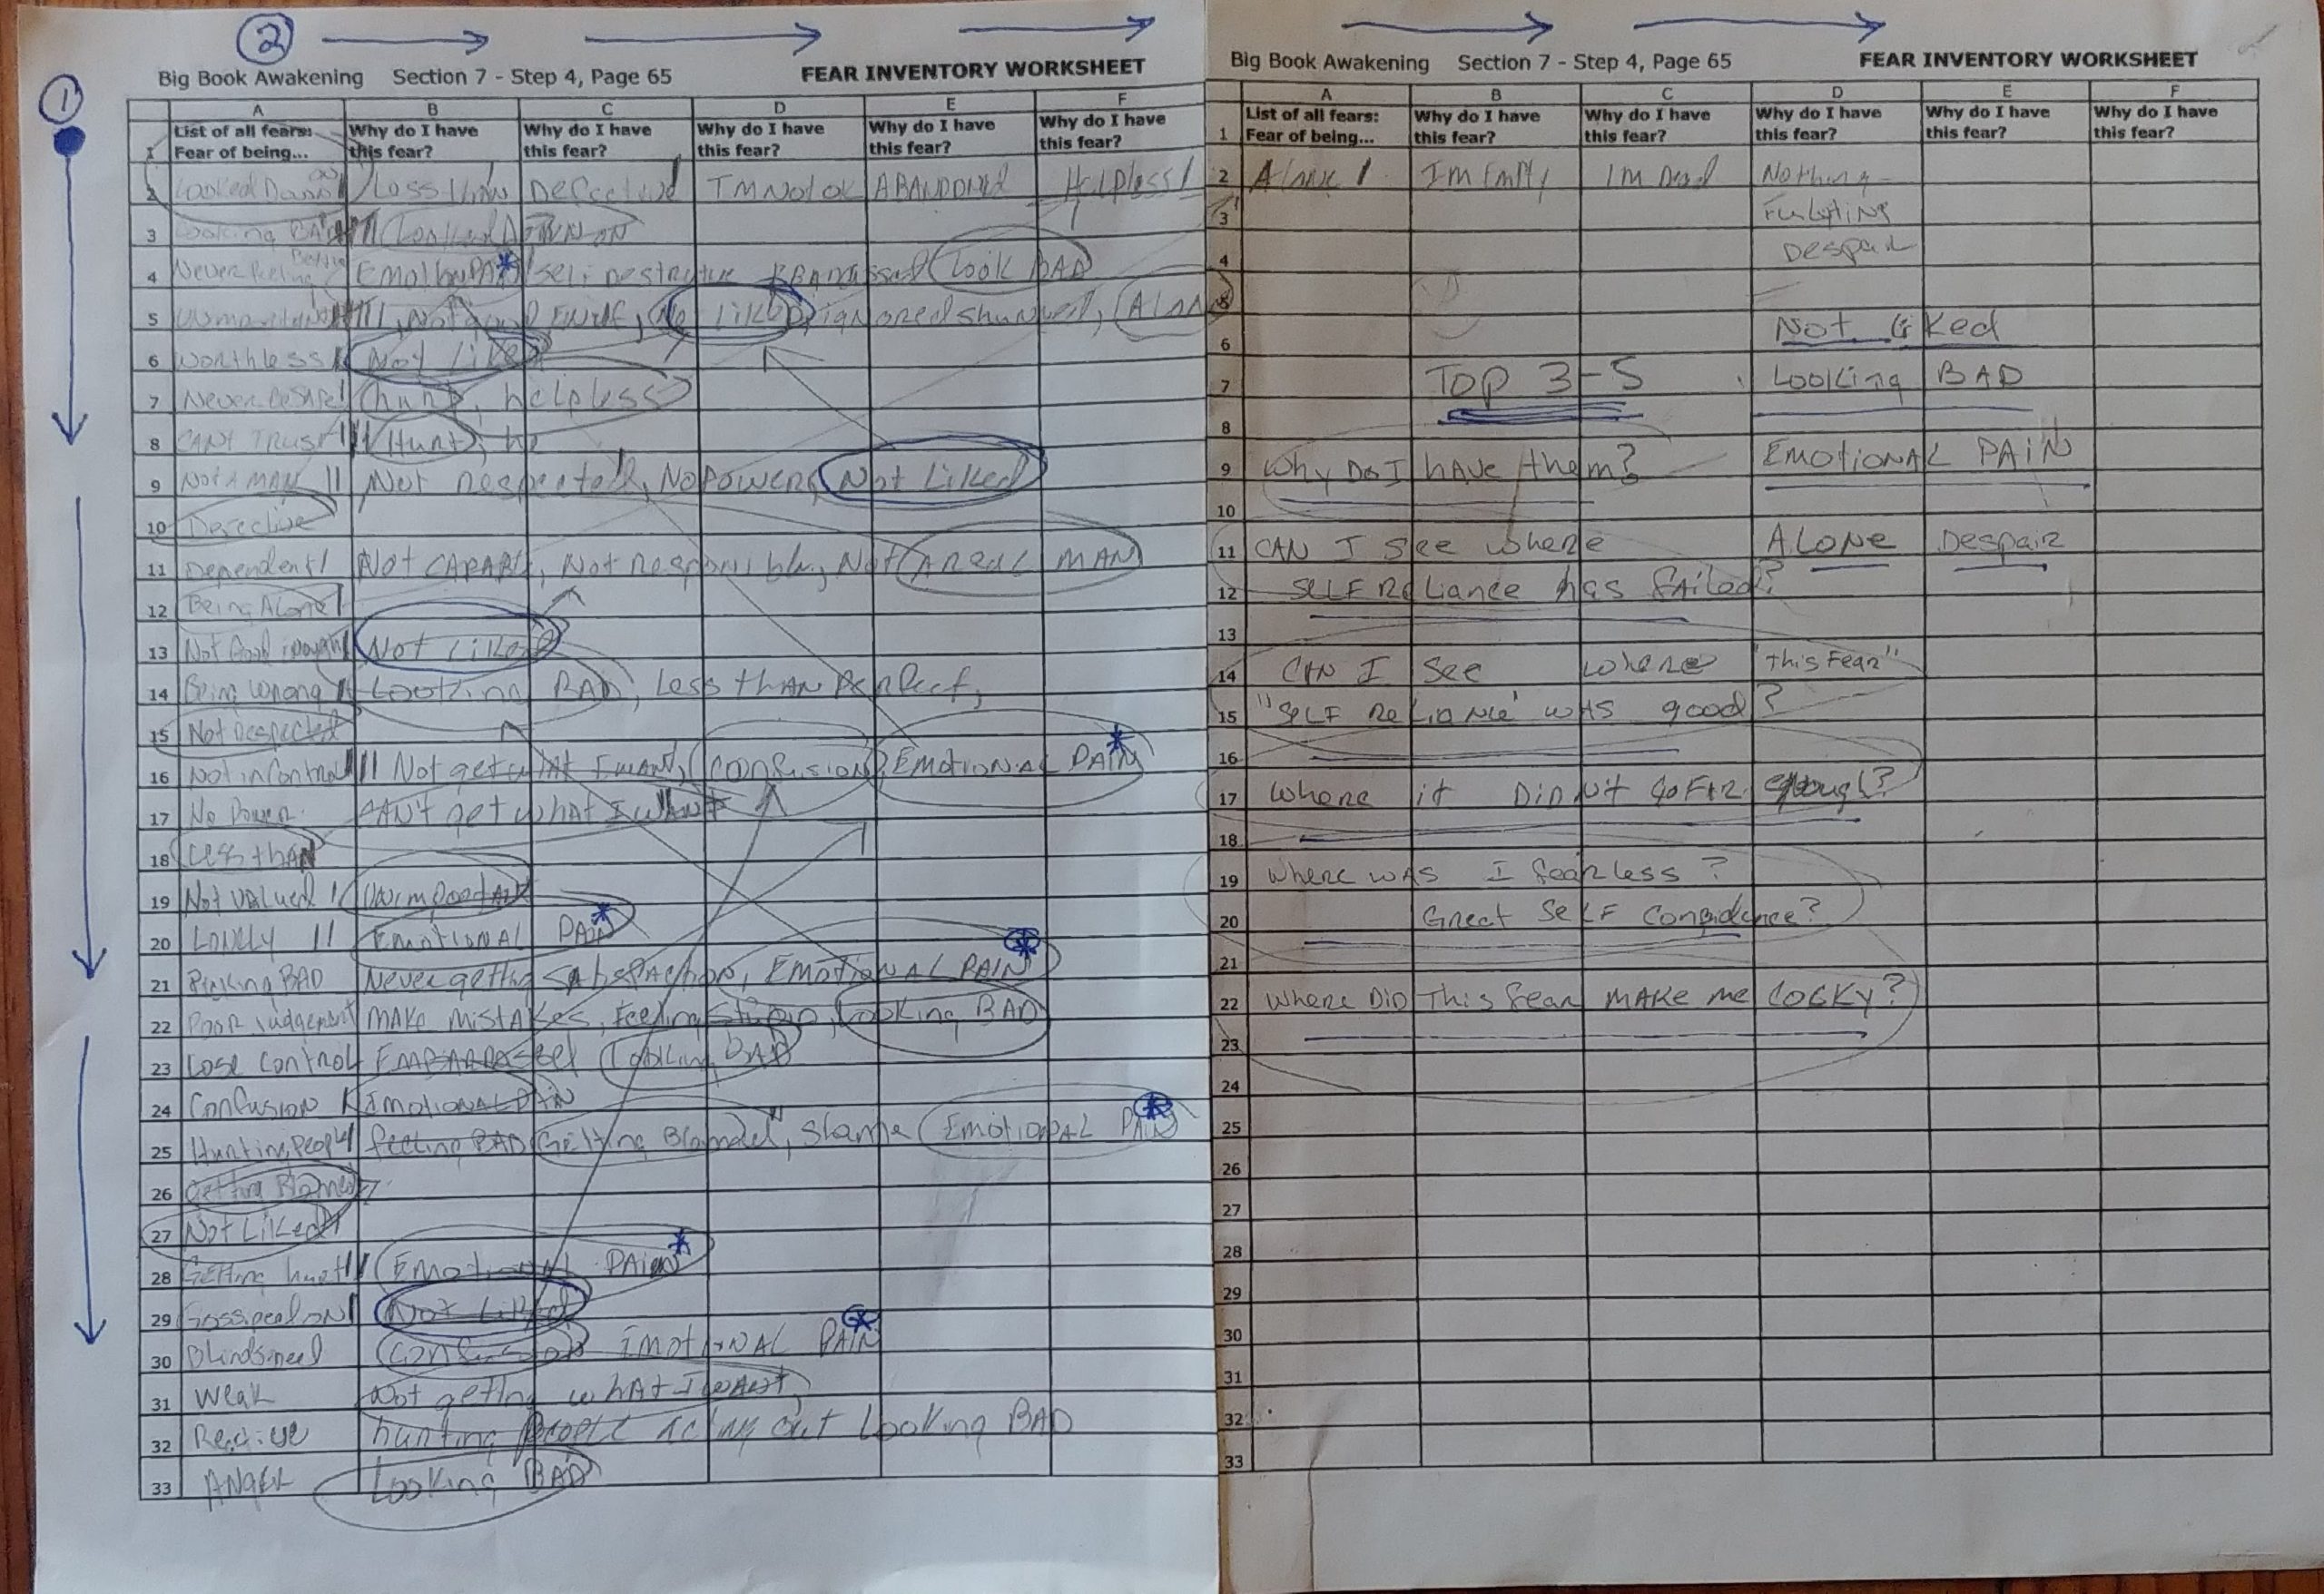 ② 
Big Book Awakening Section 7 - Step 4, Page 65 FEAR INVENTORY WORKSHEET
①
A B C D E F
1 List of all fears: Fear of being... Why do I have this fear? Why do I have this fear? Why do I have this fear? Why do I have this fear? Why do I have this fear?
2 Looked Down Less than Defected I'm Not ok ABANDONED Helpless
3 Looking BAD Looked DOWN ON
4 Never feeling Better PAIN self Destructive Look BAD
5 Not liked, ignored shunned, Alone
6 Worthless Not Liked
7 Never be safe hurt, helpless
8 CANT TRUST Hurt, he
9 NOT A MAN Not Respected, No Power, Not Liked
10 Defective
11 Dependent Not CAPABLE, Not Responsible, Not A REAL MAN
12 Being Alone
13 Not Good enough Not Liked
14 Being Wrong Looking BAD, Less thAN Perfect,
15 Not Respected
16 Not in Control Not get whAt I want, Confusion, EMOTIONAL PAIN
17 No Power CAN'T get what I WANT
18 Less thAN
19 Not valued Unimportant
20 LONELY EMOTIONAL PAIN
21 BAD Never getting SAtisfAction, EMOTIONAL PAIN
22 POOR Judgement MAKE MISTAKES, Feeling Stupid, Looking BAD
23 Lose Control EMBARRASSED Looking BAD
24 Confusion EMOTIONAL PAIN
25 Hurting People feeling BAD Getting Blamed, Shame EMOTIONAL PAIN
26 Getting Blamed
27 Not Liked
28 Getting hurt EMOTIONAL PAIN
29 Gossiped ON Not Liked
30 Confusion EMOTIONAL PAIN
31 Weak Not getting whAt I WANT,
32 hurting PEOPLE Acting out Looking BAD
33 ANGER Looking BAD
Big Book Awakening Section 7 - Step 4, Page 65 FEAR INVENTORY WORKSHEET
A B C D E F
1 List of all fears: Fear of being... Why do I have this fear? Why do I have this fear? Why do I have this fear? Why do I have this fear? Why do I have this fear?
2 Alone I'm Empty I'm Dead Nothing
3
4 Despair
5
6 Not liked
7 Top 3-5 Looking BAD
8
9 Why Do I hAVE them? EMOTIONAL PAIN
10
11 CAN I see where ALONE Despair
12 SELF Reliance has failed?
13
14 CAN I See where "this Fear"
15 "SELF ReLiANCe' wAS good?
16
17 Where it DiDN't go FAR enough?
18
19 Where wAS I fearless?
20 Great SeLF Confidence?
21
22 Where DiD This fear MAKE me COCKY?
23
24
25
26
27
28
29
30
31
32
33